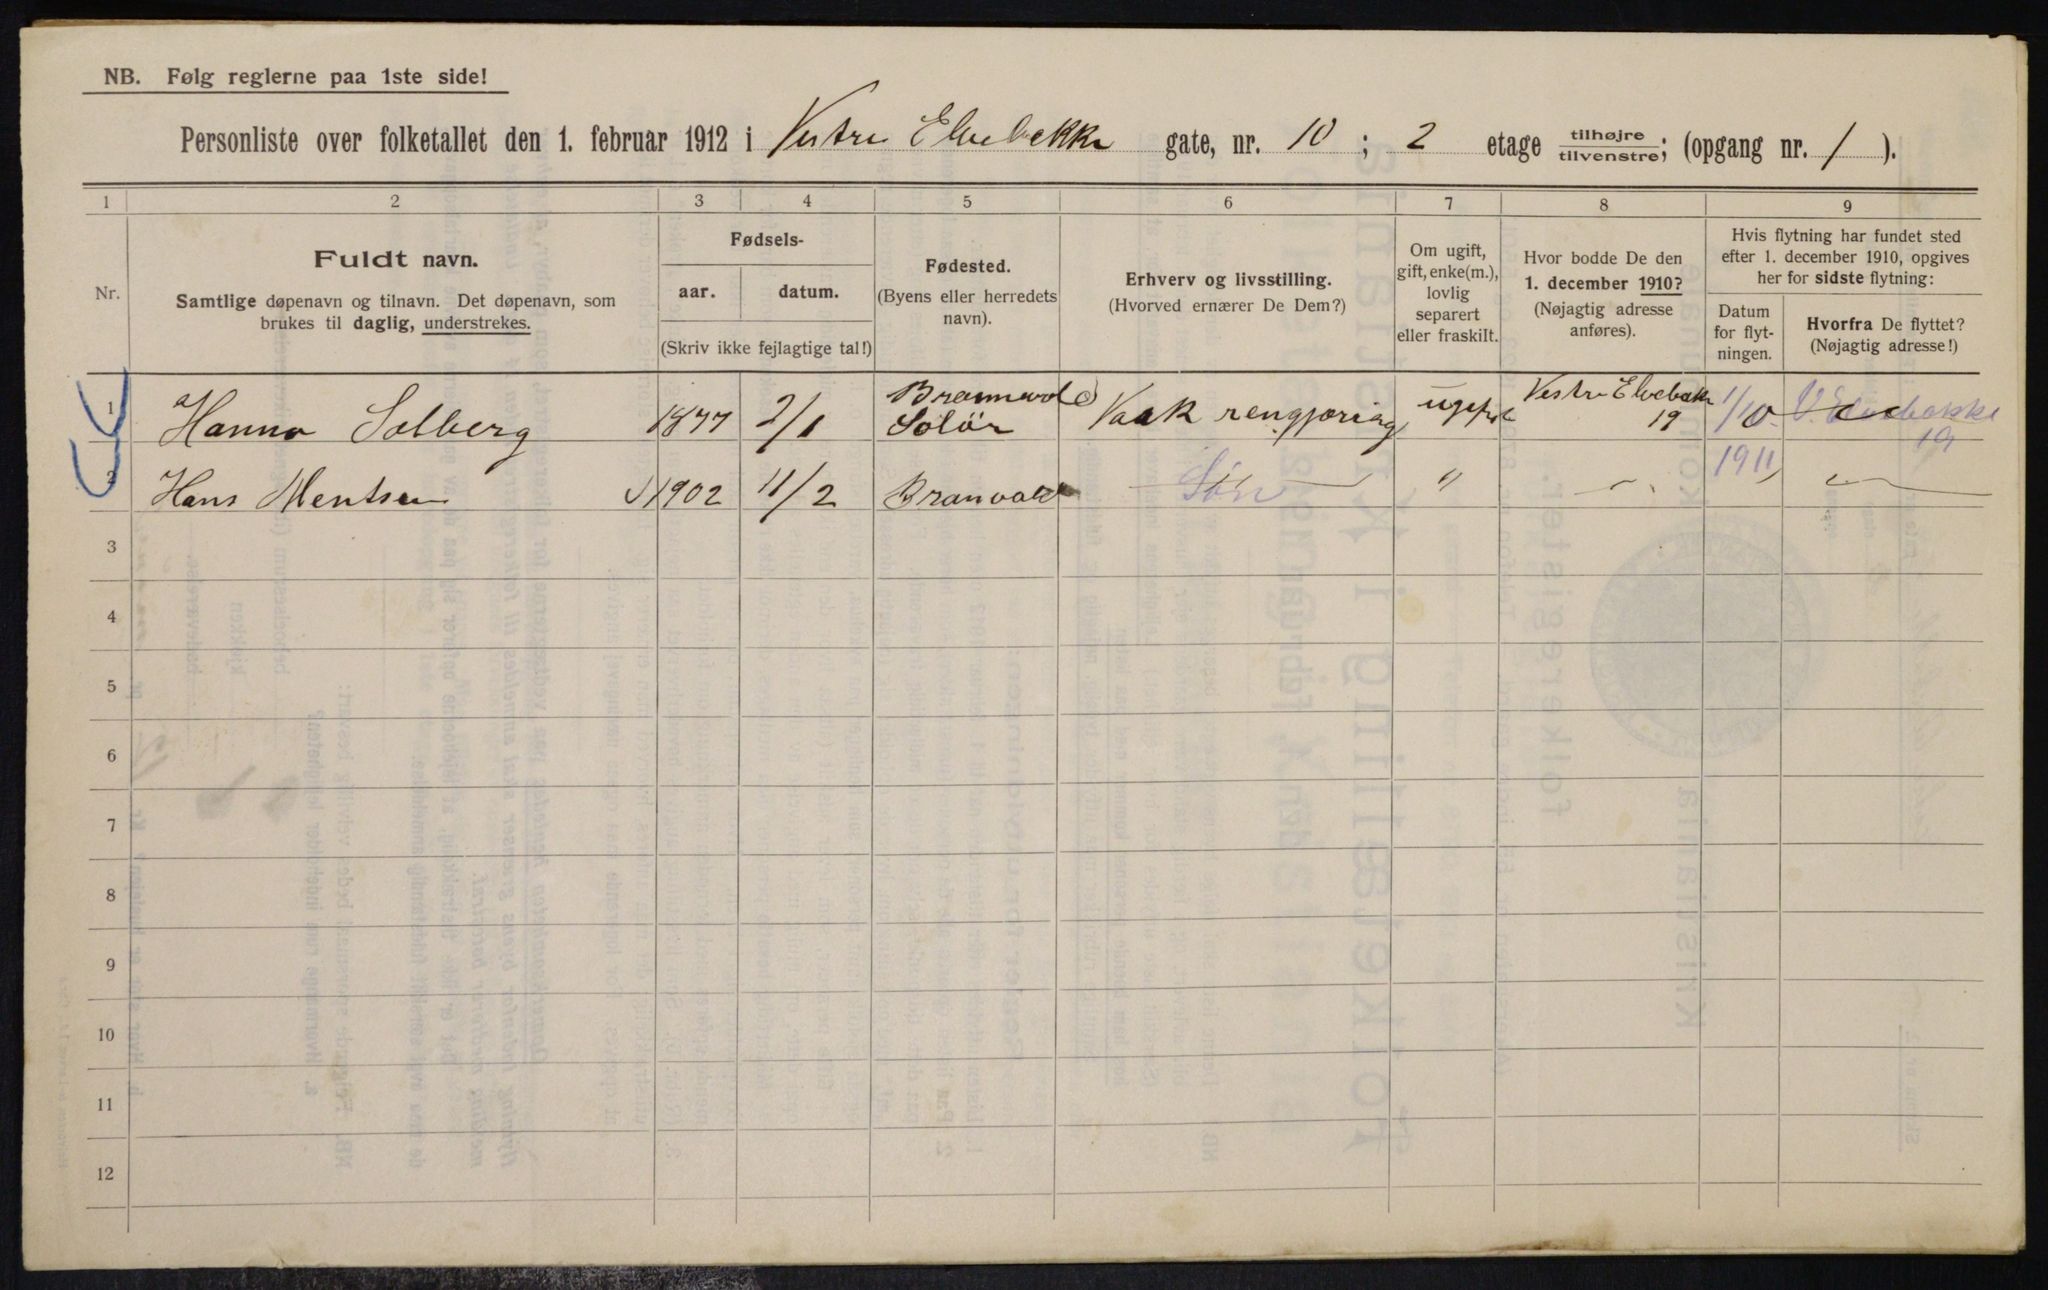 NB. Følg reglerne paa 1ste side!
Personliste over folketallet den 1. februar 1912 i Vestre Elvebakke gate, nr. 10 ; 2 etage tilhøjre/tilvenstre; (opgang nr. 1 ).
1 2 3 4 5 6 7 8 9
Nr.
Fuldt navn.
Samtlige døpenavn og tilnavn. Det døpenavn, som
brukes til daglig, understrekes.
Fødsels-
aar. datum.
(Skriv ikke fejlagtige tal!)
Fødested.
(Byens eller herredets
navn).
Erhverv og livsstilling.
(Hvorved ernærer De Dem?)
Om ugift,
gift, enke(m.),
lovlig
separert
eller fraskilt.
Hvor bodde De den
1. december 1910?
(Nøjagtig adresse
anføres).
Hvis flytning har fundet sted
efter 1. december 1910, opgives
her for sidste flytning:
Datum
for flyt-
ningen.
Hvorfra De flyttet?
(Nøjagtig adresse!)
1 Hanna Solberg 1877 2/1 Brannvold Solör Vask rengjøring ugift Vestre Elvebakke 19 1/10 1911 V. Elvebakke 19
2 Hans Mentsen 1902 11/2 Branvold Søn "
3
4
5
6
7
8
9
10
11
12